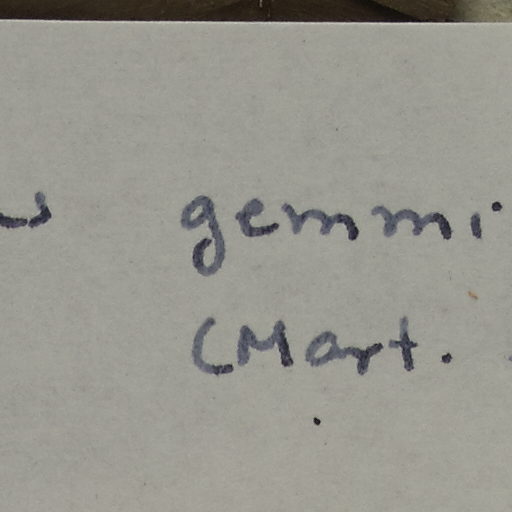 gemmi
(Mart.